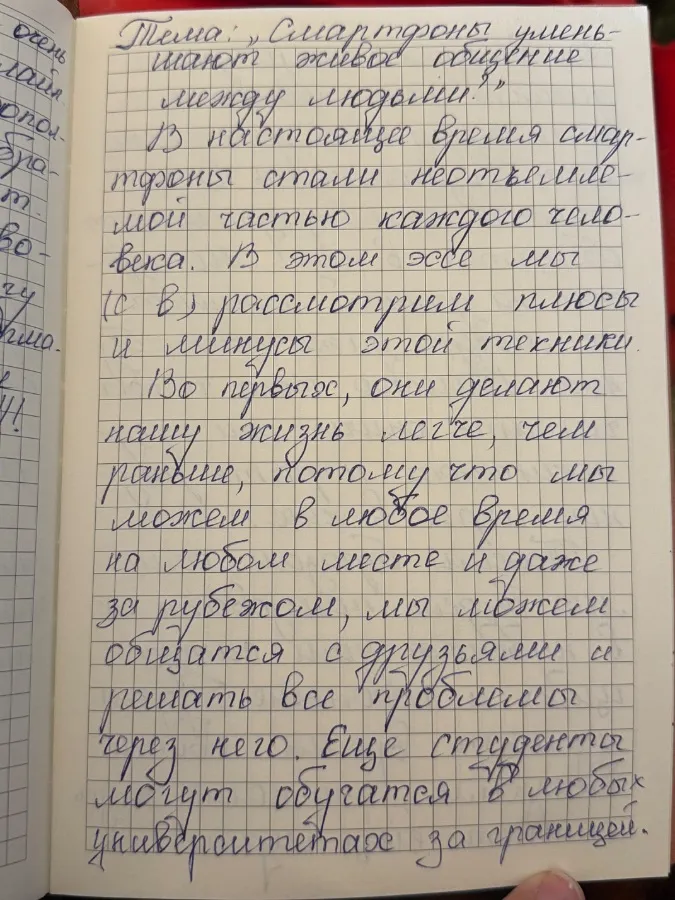 очень
лайн
опол-
бра-
т.
во-
гу
рма.
е
у!
Тема: „Смартфоны умень-
шают живое общение
между людьми?"
В настоящее время смар-
тфоны стали неотъемле-
мой частью каждого чело-
века. В этом эссе мы
(с в) рассмотрим плюсы
и минусы этой техники.
Во первых, они делают
нашу жизнь легче, чем
раньше, потому что мы
можем в любое время
на любом месте и даже
за рубежом, мы можем
общатся с друзьями и
решать все проблемы
через него. Еще студенты
могут обучатся в любых
университетах за границей.